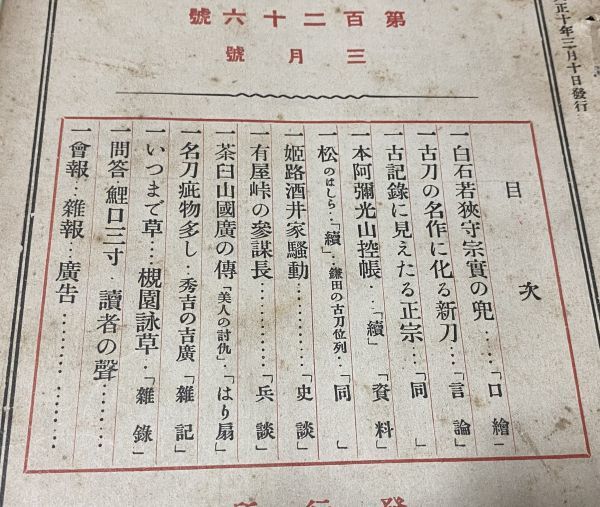 正十年三月十日發行
第百二十六號
三月號
目次
一白石若狹守宗實の兜‥‥「口繪」
一古刀の名作に化る新刀‥‥「言論」
一古記錄に見えたる正宗‥‥「同」
一本阿彌光山控帳‥‥「續」「資料」
一松のはしら‥「續」‥鎌田の古刀位列‥「同」
一姬路酒井家騷動‥‥‥‥「史談」
一有屋峠の參謀長‥‥‥‥「兵談」
一茶臼山國廣の傳「美人の討仇」‥「はり扇」
一名刀疵物多し‥秀吉の吉廣「雜記」
一いつまで草‥‥槻園詠草‥「雜錄」
一問答‥鯉口三寸‥讀者の聲‥‥‥
一會報‥雜報‥廣告‥‥‥‥‥‥